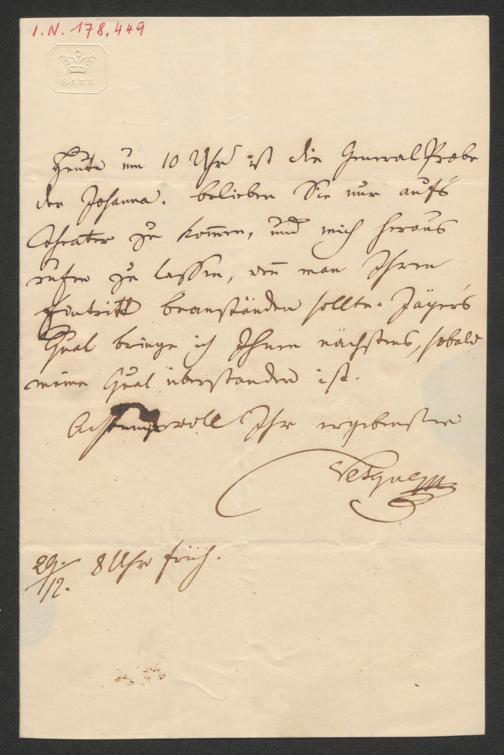 I.N. 178,449
BATH
Heute um 10 Uhr ist die General Probe
der Johanna. belieben Sie nur aufs
Theater zu kom̅en, und mich heraus
rufen zu lassen, wen̅ man Ihren
Eintritt beanständen sollte. Jäger's
Qual bringe ich Ihnen nächstens, sobald
meine Qual überstanden ist.
Achtungsvoll Ihr ergebenster
Vesque
29./12. 8 Uhr früh.